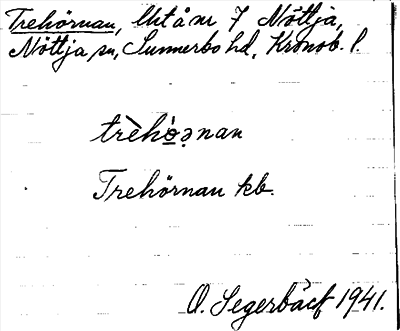 Trehörnan, Utå nr 7 Nöttja,
Nöttja sn, Sunnerbo hd, Kronob. l.
trèhò̤ə̣nan
Trehörnan kb.
O. Segerbäck 1941.